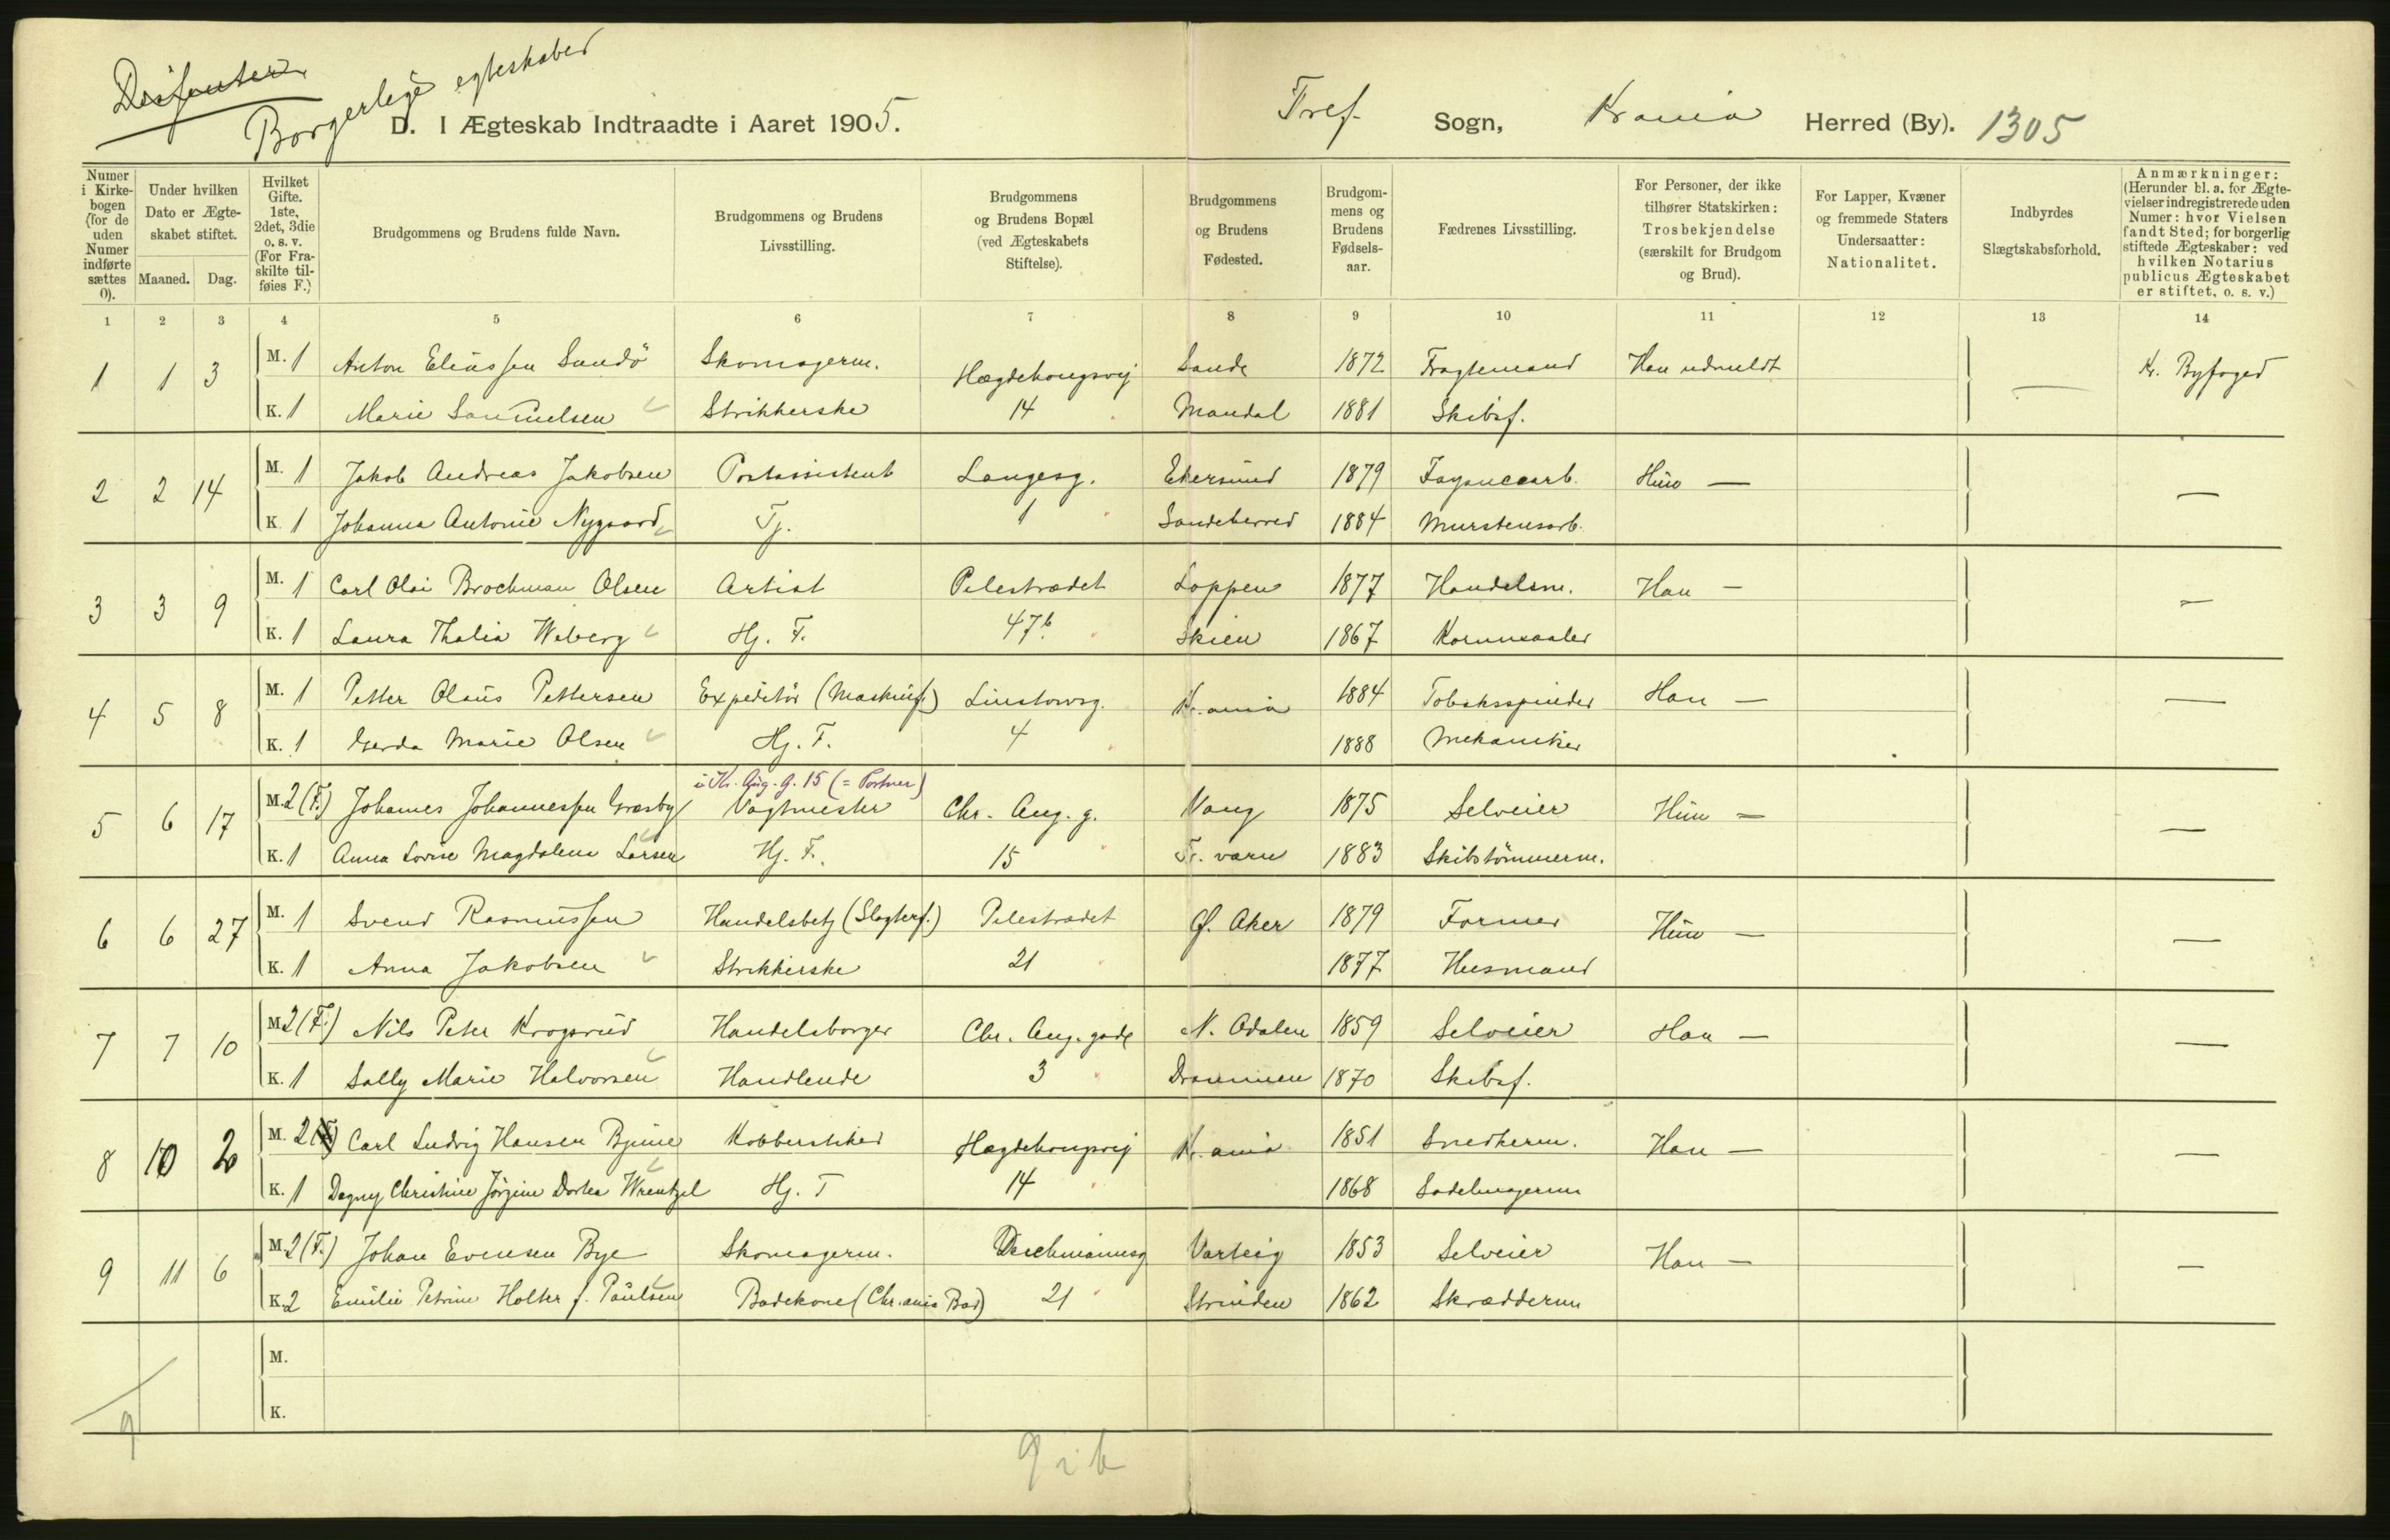 Disfenter
Borgerlige egteskaber
D. I Ægteskab Indtraadte i Aaret 1905.
Tref. Sogn, Krania Herred (By). 1305
Numer i Kirkebogen (for de uden Numer indførte sættes 0).
Under hvilken Dato er Ægteskabet stiftet.
Maaned. Dag.
Hvilket Gifte. 1ste, 2det, 3die o. s. v. (For Fraskilte tilføies F.)
Brudgommens og Brudens fulde Navn.
Brudgommens og Brudens Livsstilling.
Brudgommens og Brudens Bopæl (ved Ægteskabets Stiftelse).
Brudgommens og Brudens Fødested.
Brudgommens og Brudens Fødselsaar.
Fædrenes Livsstilling.
For Personer, der ikke tilhører Statskirken: Trosbekjendelse (særskilt for Brudgom og Brud).
For Lapper, Kvæner og fremmede Staters Undersaatter: Nationalitet.
Indbyrdes Slægtskabsforhold.
Anmærkninger: (Herunder bl. a. for Ægtevielser indregistrerede uden Numer: hvor Vielsen fandt Sted; for borgerlig stiftede Ægteskaber: ved hvilken Notarius publicus Ægteskabet er stiftet, o. s. v.)
1 2 3 4 5 6 7 8 9 10 11 12 13 14
1 1 3 M. 1 Anton Eliassen Sandö Skomagerm. Hægdehougsvej Sande 1872 Fragtemand Han udmeldt — Kr. Byfoged
K. 1 Marie Samuelsen Strikkerske 14 Mandal 1881 Skibsf.
2 2 14 M. 1 Jakob Andreas Jakobsen Postassistent Langesg. Ekersund 1879 Fayancearb. Hun — —
K. 1 Johanna Antonie Nygaard Tj. 1 Sandeherred 1884 Murstensarb.
3 3 9 M. 1 Carl Olai Brochman Olsen Artist Pilestrædet Loppen 1877 Handelsm. Han — —
K. 1 Laura Thalia Weberg Hj. F. 47b. Skien 1867 Kornmaaler
4 5 8 M. 1 Petter Olaus Pettersen Expeditör (Maskinf.) Linstowsg. Kr.ania 1884 Tobaksspinder Han — —
K. 1 Gerda Marie Olsen Hj. F. 4 1888 Mekaniker
i Kr. Aug. g. 15 (= Portner)
5 6 17 M. 2 (F.) Johannes Johannessen Græsby Vagtmester Chr. Aug. g. Vang 1875 Selveier Hun — —
K. 1 Anna Lovise Magdalena Larsen Hj. F. 15 Fr. værn 1883 Skibstömmerm.
6 6 27 M. 1 Svend Rasmussen Handelsbetj (Slagterf.) Pilestrædet Ø. Aker 1879 Former Hun — —
K. 1 Anna Jakobsen Strikkerske 21 1877 Husmand
7 7 10 M. 2 (F.) Nils Peter Krogsrud Handelsborger Chr. Aug. gade N. Odalen 1859 Selveier Han — —
K. 1 Sally Marie Halvorsen Handlende 3 Drammen 1870 Skibsf.
8 10 2 M. 2 Carl Ludvig Hansen Kobberstikker Hægdehougsvej Kr.ania 1851 Snedkerm. Han — —
K. 1 Dagny Christine Jörgine Dortea Wrentzel Hj. F 14 1868 Sadelmagerm
9 11 6 M. 2 (F.) Johan Evensen Bye Skomagerm. Deichmannsg Varteig 1853 Selveier Han — —
K. 2 Emilie Petrine Holter f. Paulsen Badekone (Chr.ania Bad) 21 Strinden 1862 Skrædderm
M.
K.
9
9 i b